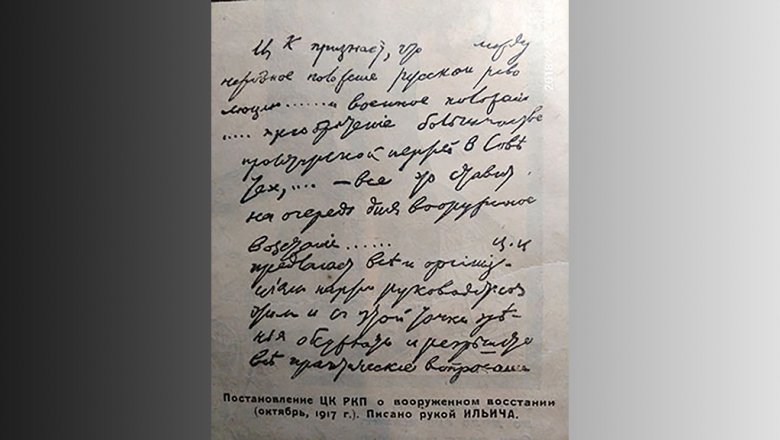 ЦК признает, что между
народное положение русской рево
люции......и военное положен
.... приобретение большинства
пролетарской партией в Сове
тах,.... — все это ставит
на очередь дня вооруженное
восстание...... Ц.К
предлагает всѣм организ-
циям партии руководиться
этим и с этой точки зрѣ-
ния обсуждать и разрешать
всѣ практические вопросы
Постановление ЦК РКП о вооруженном восстании
(октябрь, 1917 г.). Писано рукой ИЛЬИЧА.